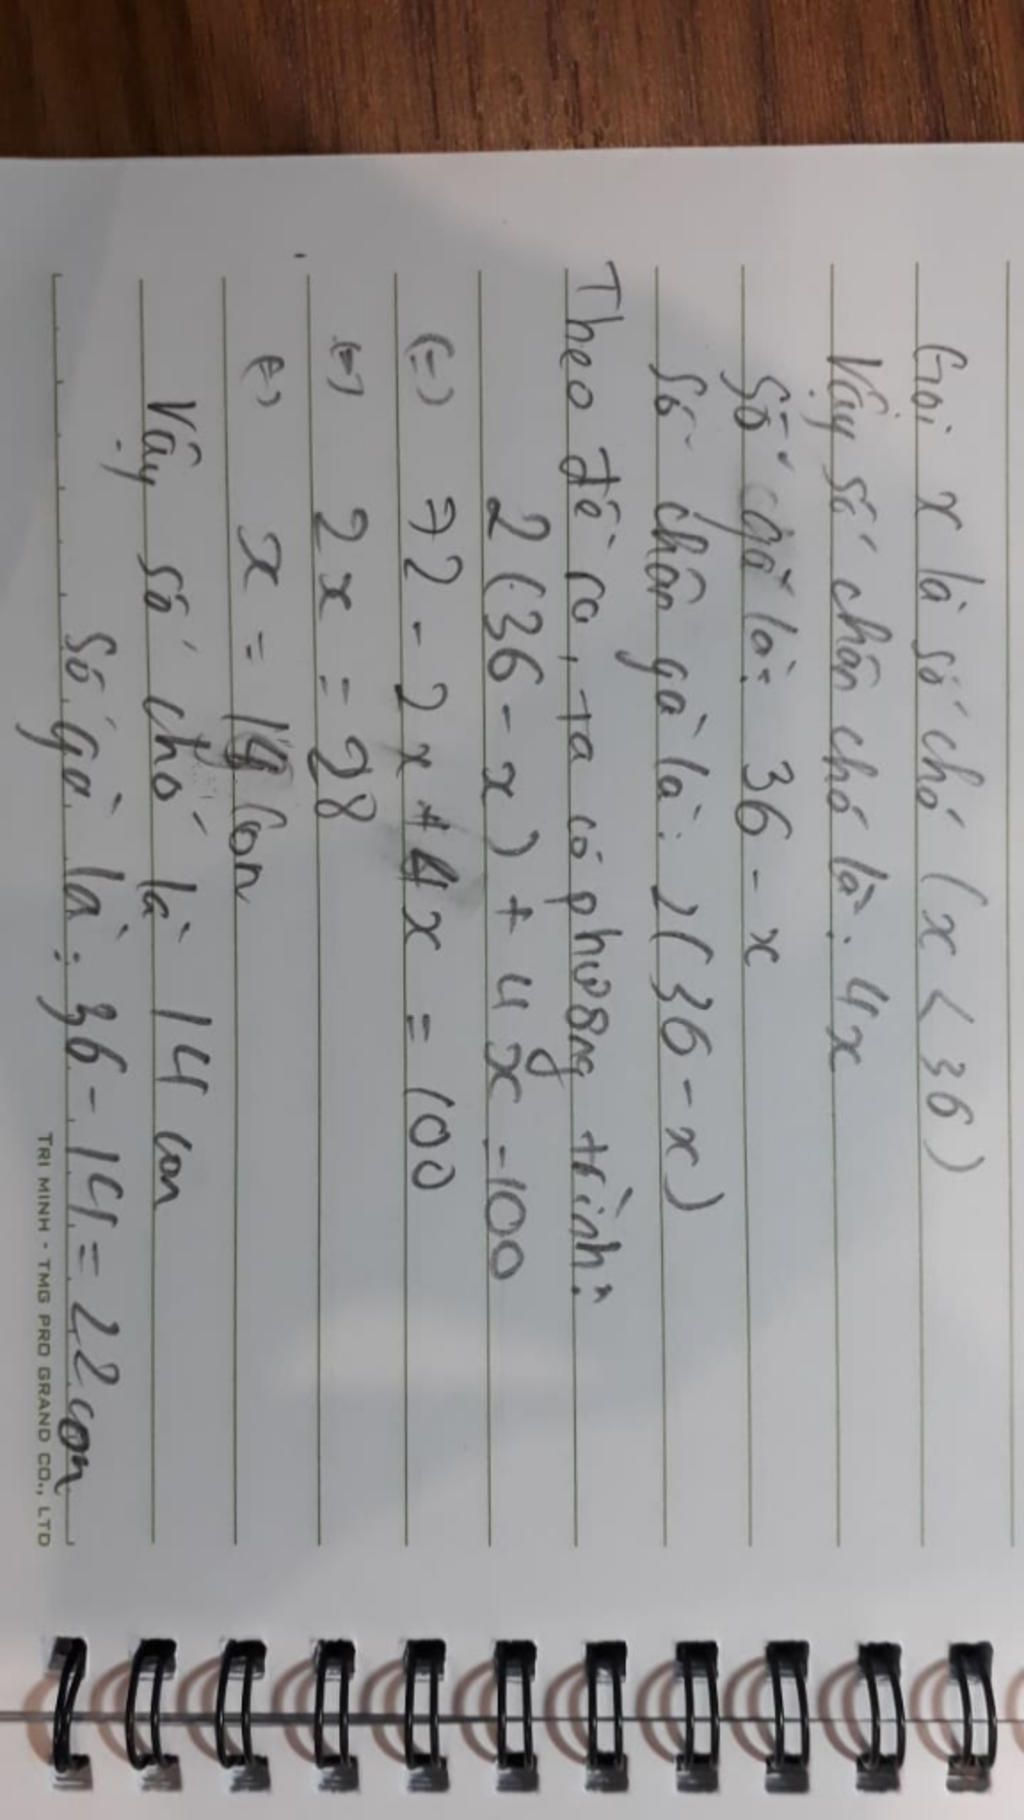 Gọi x là số chó (x < 36)
Vậy số chân chó là: 4x
Số gà là: 36 - x
Số chân gà là: 2(36 - x)
Theo đề ra, ta có phương trình:
2(36 - x) + 4x = 100
(=) 72 - 2x + 4x = 100
(=) 2x = 28
(=) x = 14 con
Vậy số chó là 14 con
Số gà là: 36 - 14 = 22 con
TRI MINH - TMG PRO GRAND CO., LTD